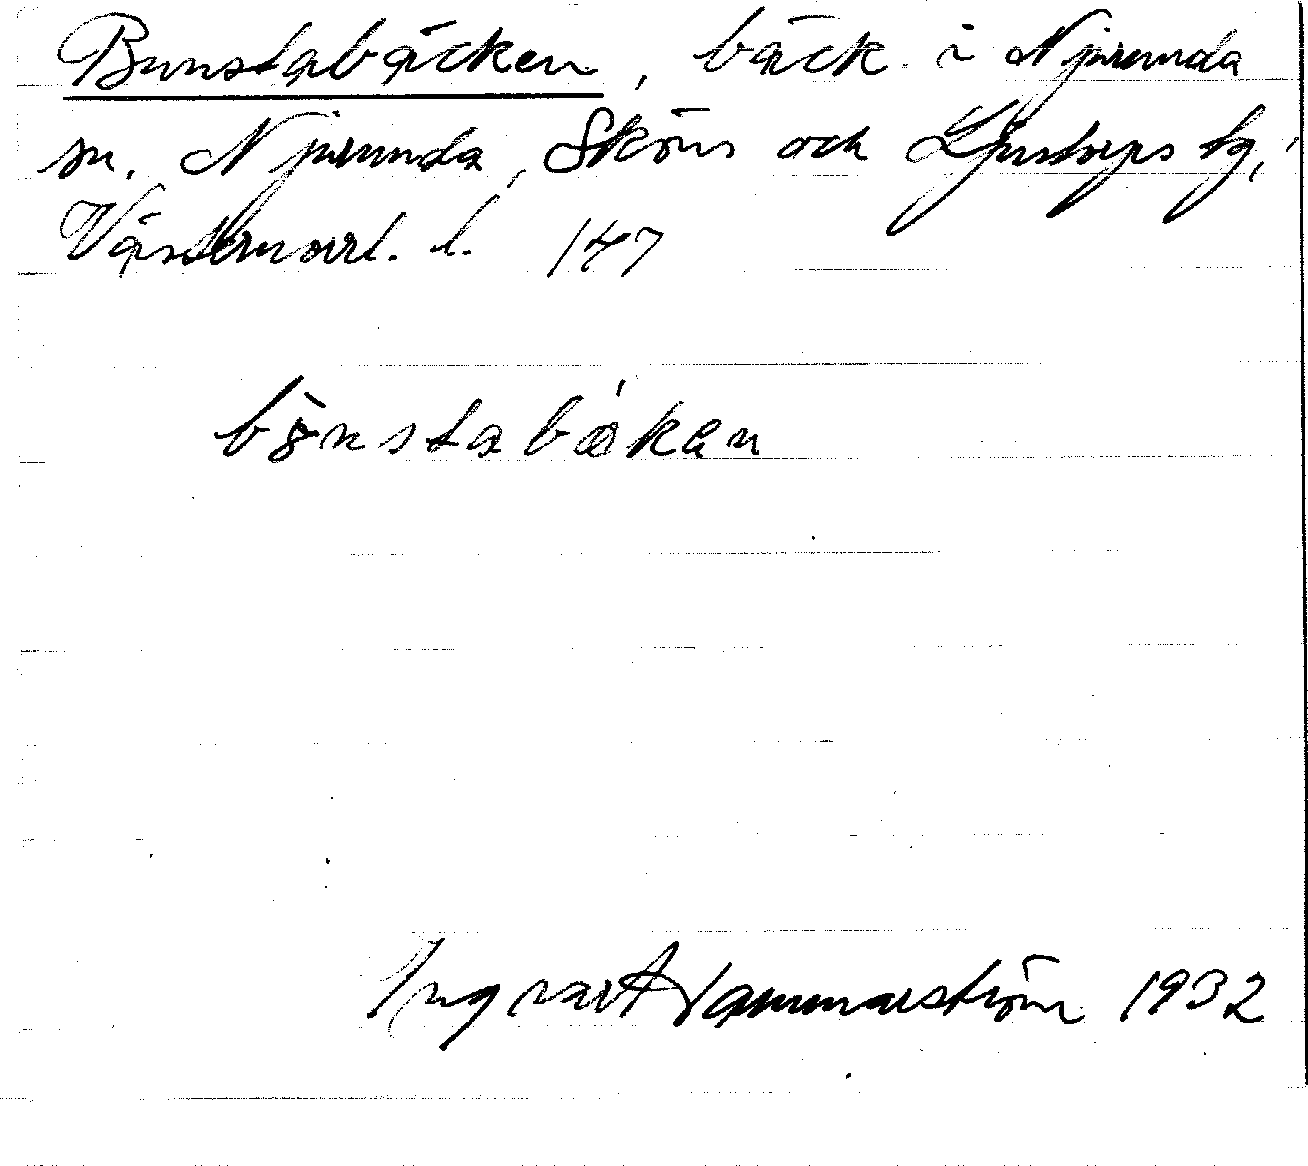 Bunstabäcken, bäck i Njurunda
sn. Njurunda, Sköns och Ljustorps tg,
Västernorrl. l. 147
bönstabäkan
Ingvar Hammarström 1932